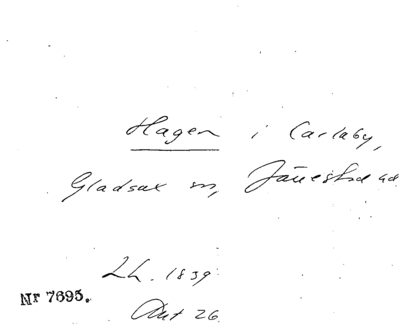 Hagen i Carlaby,
Gladsax sn, Järrestad hd
LL. 1839
Akt 26
Nr 7695.